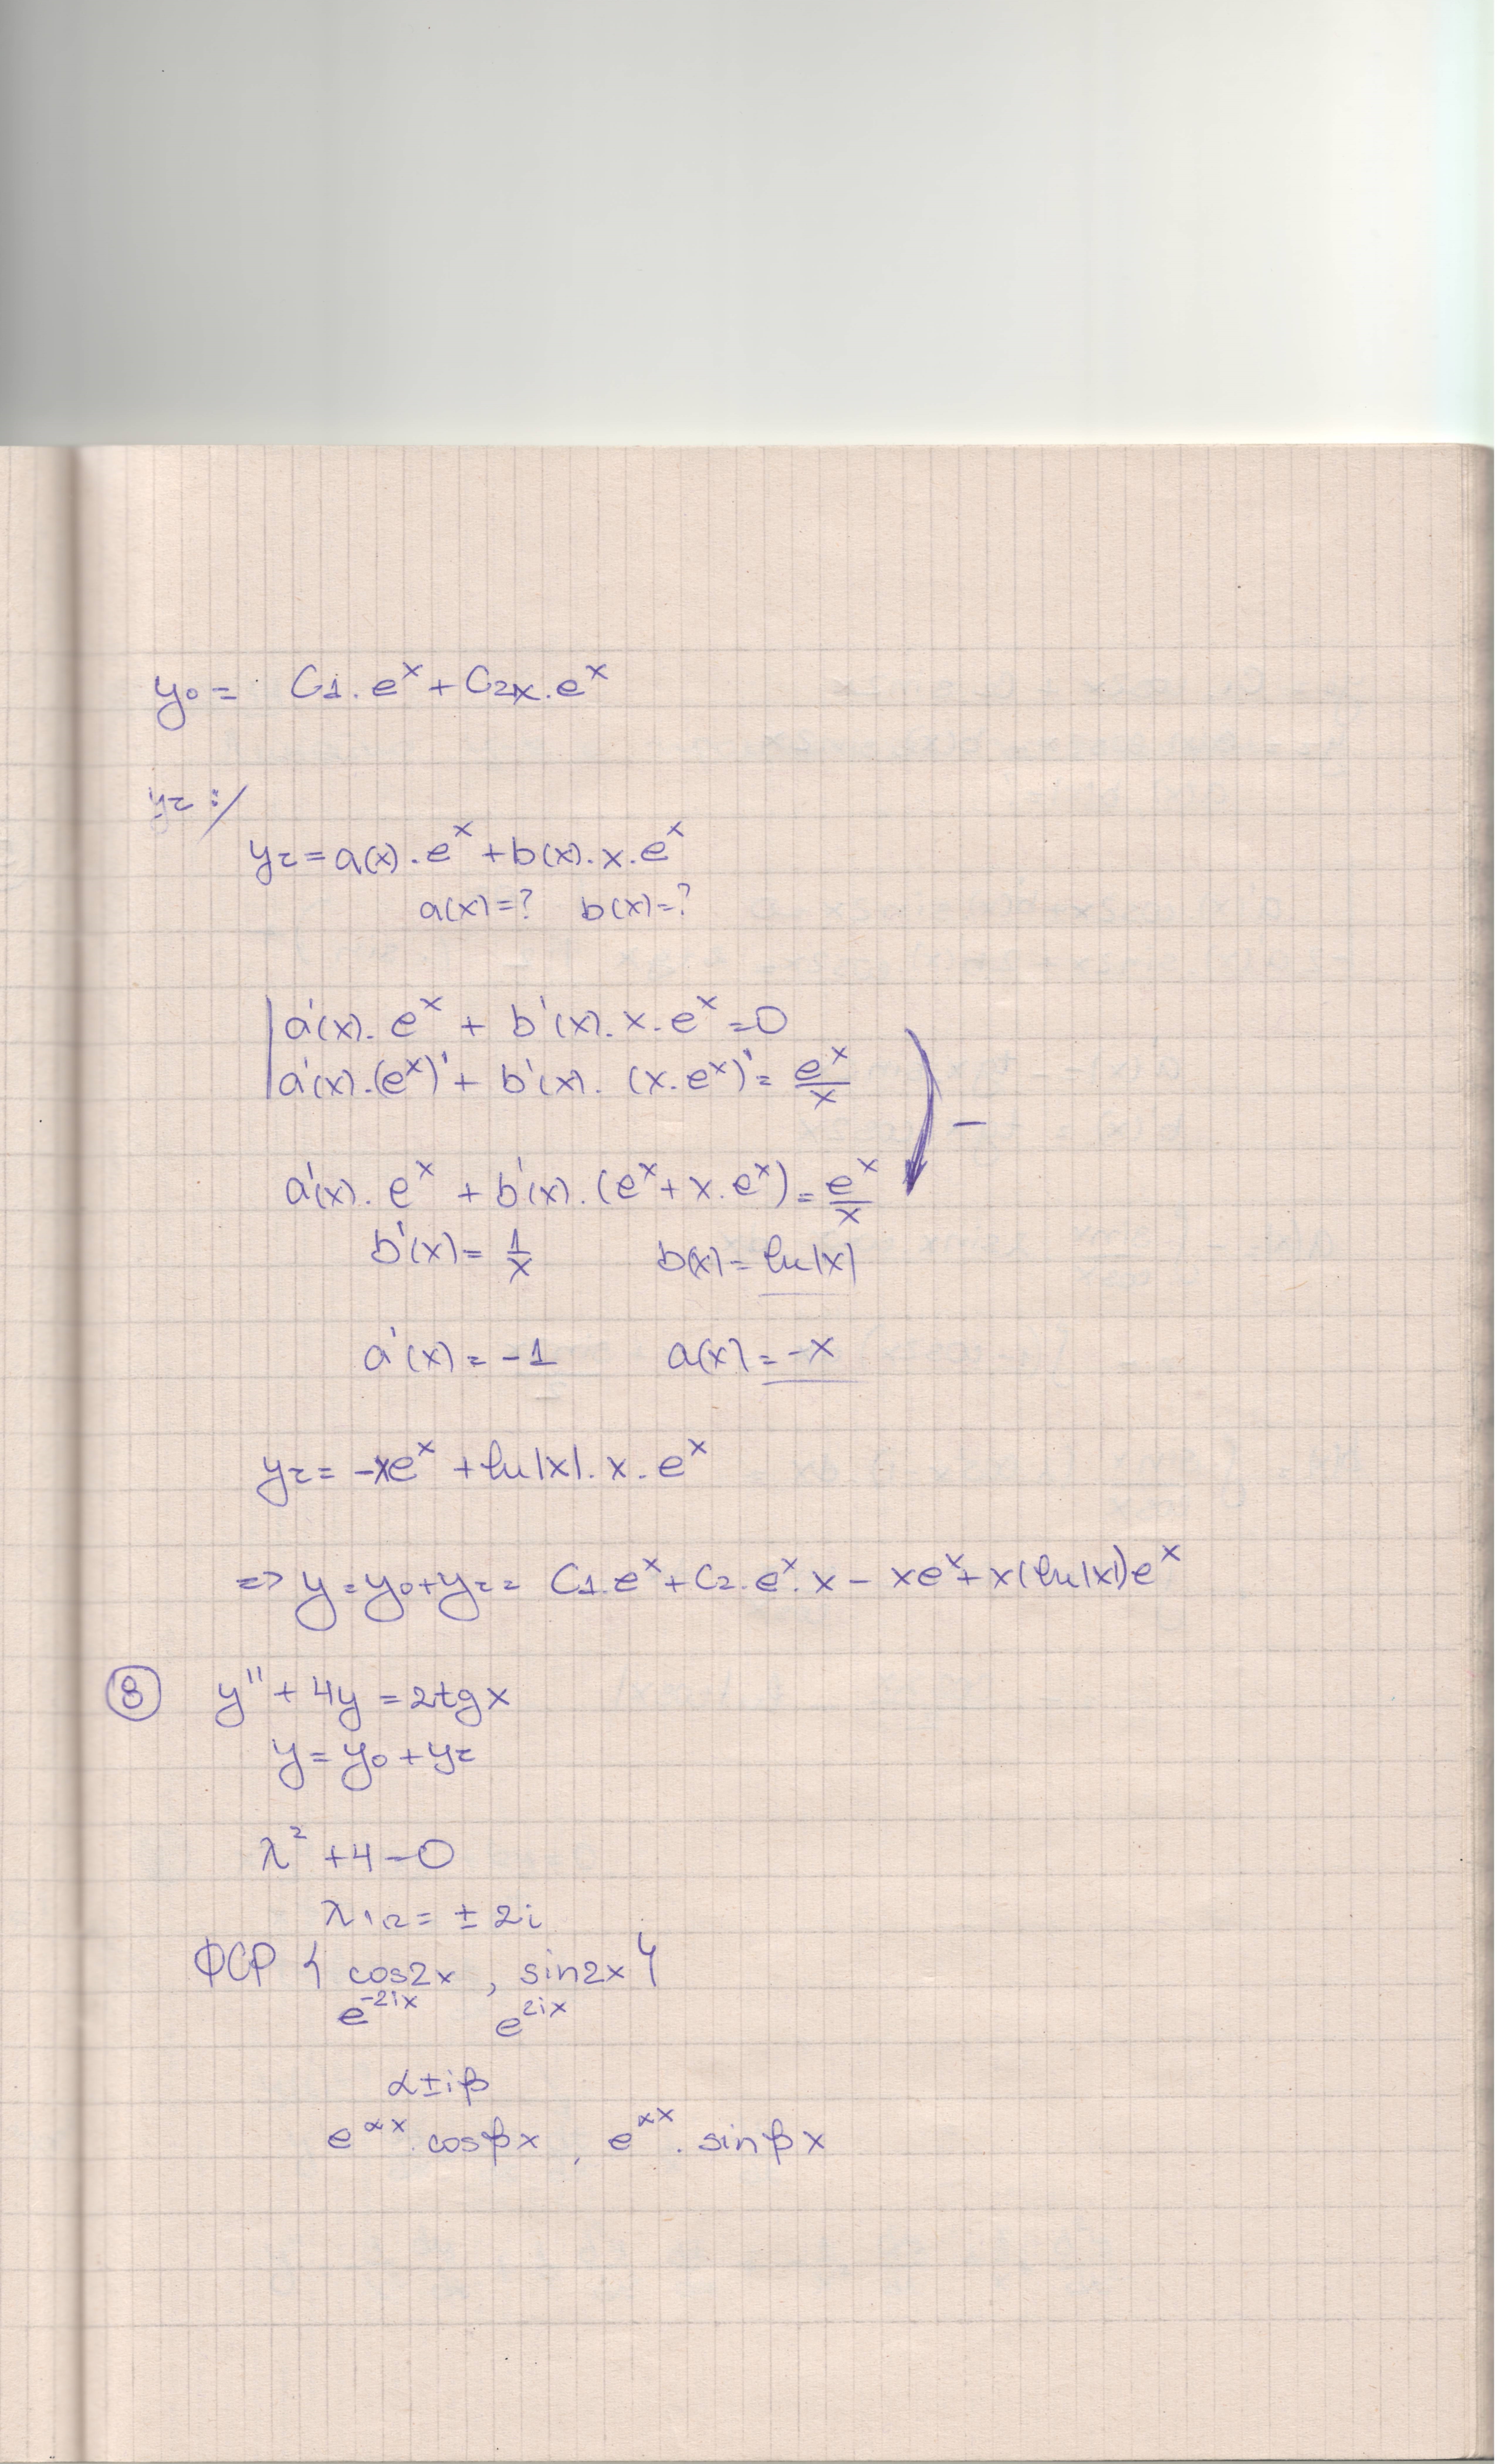 y₀ = C₁.eˣ + C₂x.eˣ
yr :/
yr = a(x).eˣ + b(x).x.eˣ
a(x)=? b(x)=?
a'(x).eˣ + b'(x).x.eˣ = 0
a'(x).(eˣ)' + b'(x).(x.eˣ)' = eˣ/x
–
a'(x).eˣ + b'(x).(eˣ + x.eˣ) = eˣ/x
b'(x) = 1/x b(x) = ln|x|
a'(x) = -1 a(x) = -x
yr = -xeˣ + ln|x|.x.eˣ
=> y = y₀ + yr = C₁.eˣ + C₂.eˣ.x - xeˣ + x(ln|x|)eˣ
⑧ y'' + 4y = 2tgx
y = y₀ + yr
λ² + 4 = 0
λ₁,₂ = ± 2i
ФСР { cos2x , sin2x }
e⁻²ⁱˣ e²ⁱˣ
α ± iβ
e^αx.cosβx , e^αx.sinβx